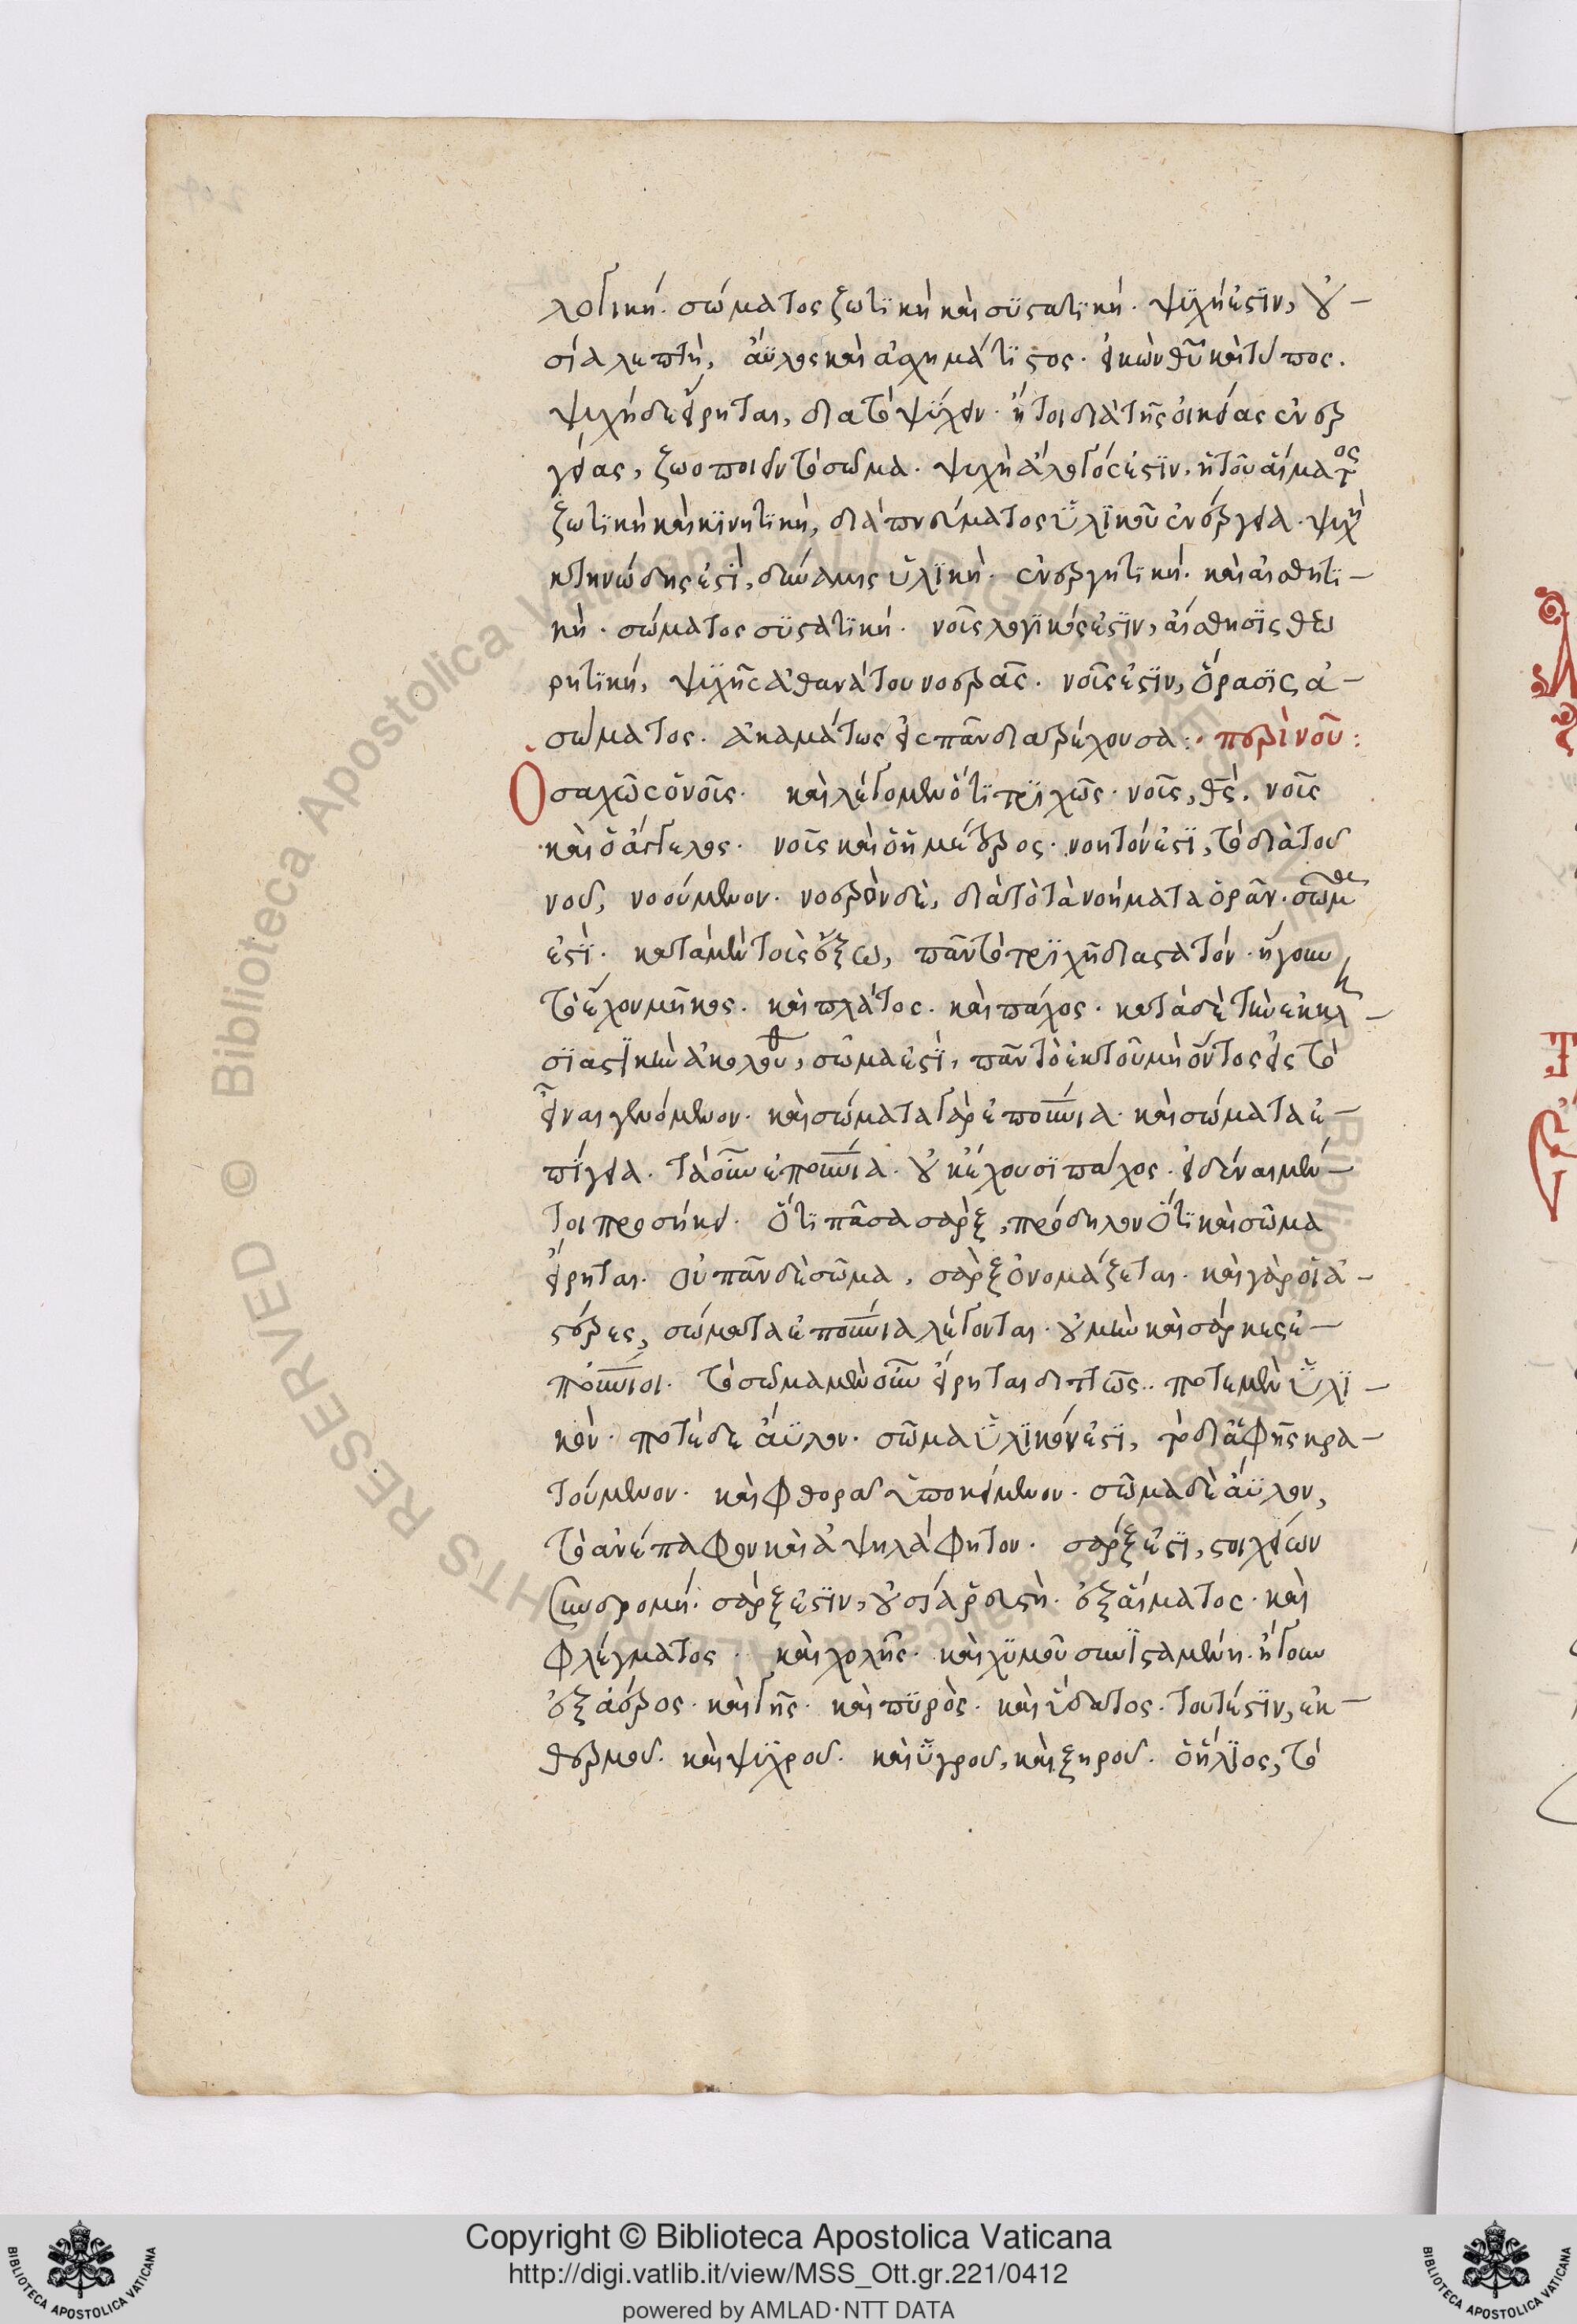 λογικὴ. σώματος ζωτϊκὴ καὶ συστατϊκή. ψυχή ἐστϊν, οὐ-
σία λεπτὴ, ἄϋλος καὶ ἀσχημάτϊστος. εἰκὼν θυ καὶ τύπος.
ψυχὴ δὲ εἴρηται, δια τὸ ψύχειν. ἤτοι διὰ τῆς οἰκείας ἐνερ
γείας, ζωοποιεῖν τὸ σῶμα. ψυχὴ ἄλογός ἐστϊν, ἡ τοῦ αἵματος
ζωτϊκὴ καὶ κϊνητϊκὴ, διὰ πνεύματος ὑλϊκοῦ ἐνέργεια. ψυχὴ
κτηνώδης ἐστὶ, δύναμις ὑλϊκὴ. ἐνεργητϊκή. καὶ αἰσθητϊ-
κή. σώματος συστατϊκή. νοῦς λογϊκός ἐστϊν, αἴσθησϊς θεω
ρητϊκή, ψυχῆς ἀθανάτου νοερᾶς. νοῦς ἐστϊν, ὅρασϊς ἀ-
σώματος. ἀκαμάτως εἰς πᾶν διατρέχουσα:· περὶ νοῦ:
Ὁσαχῶς ὁ νοῦς. καὶ λέγομεν ὅτϊ τρϊχῶς. νοῦς, θς. νοῦς
καὶ ὁ ἄγγελος. νοῦς καὶ ὁ ἡμέτερος. νοητόν ἐστϊ, τὸ διὰ τοῦ
νοῦ, νοούμενον. νοερὸν δὲ, διὰ τὸ τὰ νοήματα ὁρᾶν. σῶμα δέ
ἐστϊ. κατὰ μὲν τοὺς ἔξω, πᾶν τὸ τρϊχῆ διαστατόν. ἤγουν
τὸ ἔχον μῆκος. καὶ πλάτος. καὶ πάχος. κατὰ δὲ τὴν ἐκκλη-
σϊαστϊκὴν ἀκολουθ, σῶμα ἐστϊ, πᾶν τὸ ἐκ τοῦ μὴ ὄντος εἰς τὸ
εἶναι γενόμενον. καὶ σώματα γὰρ ἐπουνια. καὶ σώματα ἐ-
πίγεια. τὰ οὖν ἐπουνια. οὐκ ἔχουσϊ πάχος. εἰδέναι μέν-
τοι προσήκει. ὅτϊ πᾶσα σὰρξ, πρόδηλον ὅτϊ καὶ σῶμα
εἴρηται. οὐ πᾶν δὲ σῶμα, σὰρξ ὀνομάζεται. καὶ γὰρ οἱ ἀ-
στέρες, σώματα ἐπουνια λέγονται. οὐ μὴν καὶ σάρκες ἐ-
πουνιοι. τὸ σῶμα μὲν οὖν εἴρηται διττῶς.. ποτὲ μὲν ὑλϊ-
κὸν. ποτὲ δὲ ἄϋλον. σῶμα ὑλϊκόν ἐστϊ, τὸ δι ἁφῆς κρα-
τούμενον. καὶ φθορᾶ ὑποκείμενον. σῶμα δὲ ἄϋλον,
τὸ ἀνέπαφον καὶ ἀψηλάφητον. σάρξ ἐστϊ, στοιχείων
συνδρομή. σάρξ ἐστϊν, οὐσία ῥευστὴ. ἐξ αἵματος. καὶ
φλέγματος. καὶ χολῆς. καὶ χϋμοῦ συνϊσταμένη. ἤγουν
ἐξ ἀέρος. καὶ γῆς. καὶ πϋρὸς. καὶ ὕδατος. τουτέστϊν, ἐκ-
θερμοῦ. καὶ ψϋχροῦ. καὶ ὑγροῦ, καὶ ξηροῦ. ὁ ἥλϊος, τὸ
Copyright © Biblioteca Apostolica Vaticana
http://digi.vatlib.it/view/MSS_Ott.gr.221/0412
powered by AMLAD·NTT DATA